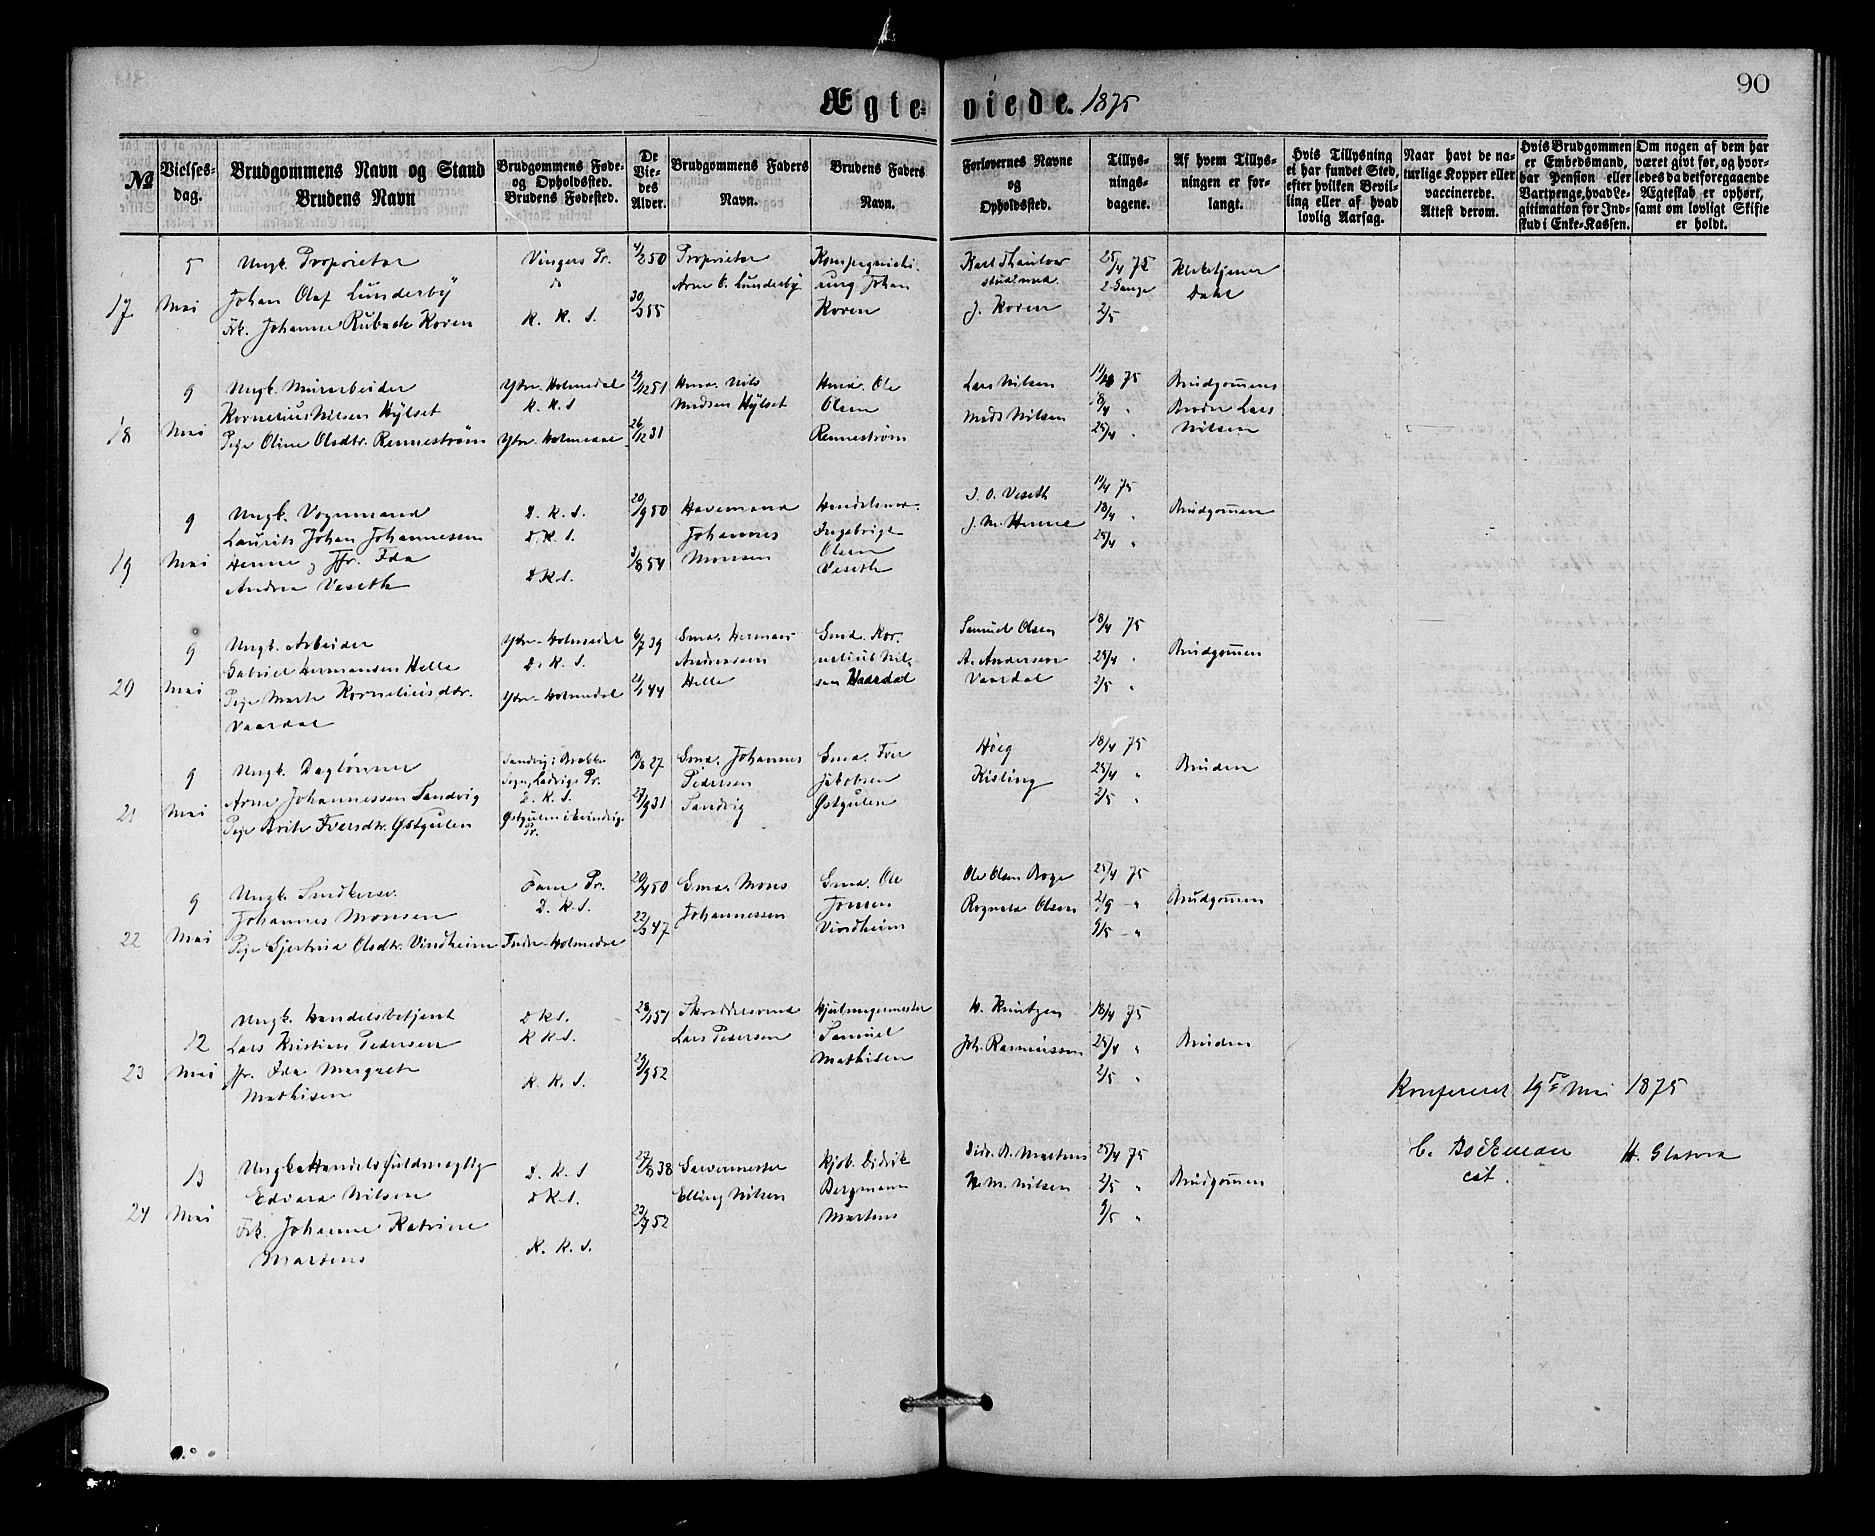 90
Ægteviede. 1875
No
Vielses-
dag.
Brudgommens Navn og Stand
Brudens Navn
Brudgommens Føde-
og Opholdssted.
Brudens Fødested.
De
Vie-
des
Alder.
Brudgommens Faders
Navn.
Brudens Faders
og
Navn.
Forlovernes Navne
og
Opholdssted.
Tillys-
nings-
dagene.
Af hvem Tillys-
ningen er for-
langt.
Hvis Tillysning
ei har fundet Sted,
efter hvilken Bevil-
ling eller af hvad
lovlig Aarsag.
Naar havt de na-
turlige Kopper eller
vaccinerede.
Attest derom.
Hvis Brudgommen
er Embedsmand,
har Pension eller
Vartpenge, hvad Le-
gitimation for Ind-
skud i Enke-Kassen.
Om nogen af dem har
været givt før, og hvor-
ledes da det foregaaende
Ægteskab er ophørt,
samt om lovligt Skifte
er holdt.
17
5
Mai
Ungk. Proprietær
Johan Olaf Lunderby
Frk. Johanne Rubach Koren
Vingers Pr.
K. K. S.
4/2 50
30/3 55
Proprietær
Arne O. Lunderby
Johan
Koren
stud. med.
J. Koren
25/4 75
2 Gange
2/5
Kirketjener
Dahl
18
9
Mai
Ungk. Murarbeider
Kornelius Nilsen Hylset
Pige Oline Olsdtr. Rennestrøm
Ytre-Holmedal
K. K. S
Ytre-Holmedal
29/12 51
26/12 31
Gmd. Nils
Madsen Hylset
Gmd. Ole
Olsen
Rennestrøm
Lars Nilsen
Mads Nilsen
11/4 75
18/4 "
25/4 "
Brudgomens
Broder Lars
Nilsen
19
9
Mai
Ungk. Vognmand
Laurits Johan Johannessen
Henne og Jfr. Ida
Andrea Veseth
D. K. S.
D. K. S.
D. K. S.
20/9 50
3/8 54
Havemand
Johannes
Monsen
Handelsmd.
Ingebrigt
Olsen
Veseth
I. O. Veseth
J. M. Henne
11/4 75
18/4 "
25/4 "
Brudgomen
20
9
Mai
Ungk. Arbeider
Gabriel Hermansen Helle
Pige Marte Korneliusdtr.
Vaardal
Ytre-Holmedal
D. K. S.
Ytre-Holmedal
6/7 39
Gmd. Herman
Andreassen
Helle
Gmd. Kor-
nelius Nil-
sen Vaardal
Samuel Olsen
A. Andersen
Vaardal
18/4 75
25/4 "
2/5 "
Brudgomen
21
9
Mai
Ungk. Daglønner
Arne Johannessen Sandvig
Pige Brite Iversdtr. Østgulen
Sandvig i Brekke
Sogn, Ladvigs Pr.
D. K. S.
Østgulen i Evindvigs
Pr.
18/8 27
27/9 31
Gmd. Johannes
Pedersen
Sandvig
Gmd. Iver
Jakobsen
Østgulen
Høeg
Kisling
18/4 75
25/4 "
2/5 "
Bruden
22
9
Mai
Ungk. Snedkersv.
Johannes Monsen
Pige Gjertrud Olsdtr. Vindheim
Fane Pr.
D. K. S.
Indre-Holmedal
20/4 50
22/3 47
Gmd. Mons
Johannessen
Gmd. Ole
Jonsen
Vindheim
Ole Olsen Boge
Rognald Olsen
25/4 75
2/5 "
9/5 "
Brudgomen
23
12
Mai
Ungk. Handelsbetjent
Lars Kristian Pedersen
Jfr. Ida Margrete
Mathisen
D K S.
K K S.
K. K. S.
28/1 51
29/9 52
Skræddersvend
Lars Pedersen
Hjulmagermester
Samuel
Mathisen
H. Knutzen
Joh. Rasmussen
18/4 75
25/4 "
2/5 "
Bruden
Konfereret 19de Mai 1875
C. Bøckman
cst.
H. Glatved
24
13
Mai
Ungk. Handelsfuldmægtig
Edvard Nilsen
Frk. Johanne Katrine
Martens
D. K. S
D K S.
K. K. S.
27/8 38
23/7 52
Garvermester
Elling Nilsen
Kjøb. Didrik
Bergmann
Martens
Didr. B. Martens
N. M. Nilsen
25/4 75
2/5 "
9/5 "
Brudgomen